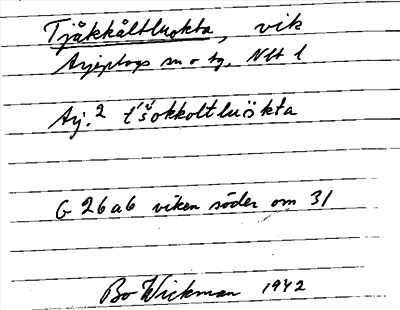 Tjåkkåltluokta, vik
Arjeplogs sn o tg, Nbt l
Arj. 2 t'šokkoltluòkta
G 26 a6 viken söder om 31
Bo Wickman 1942